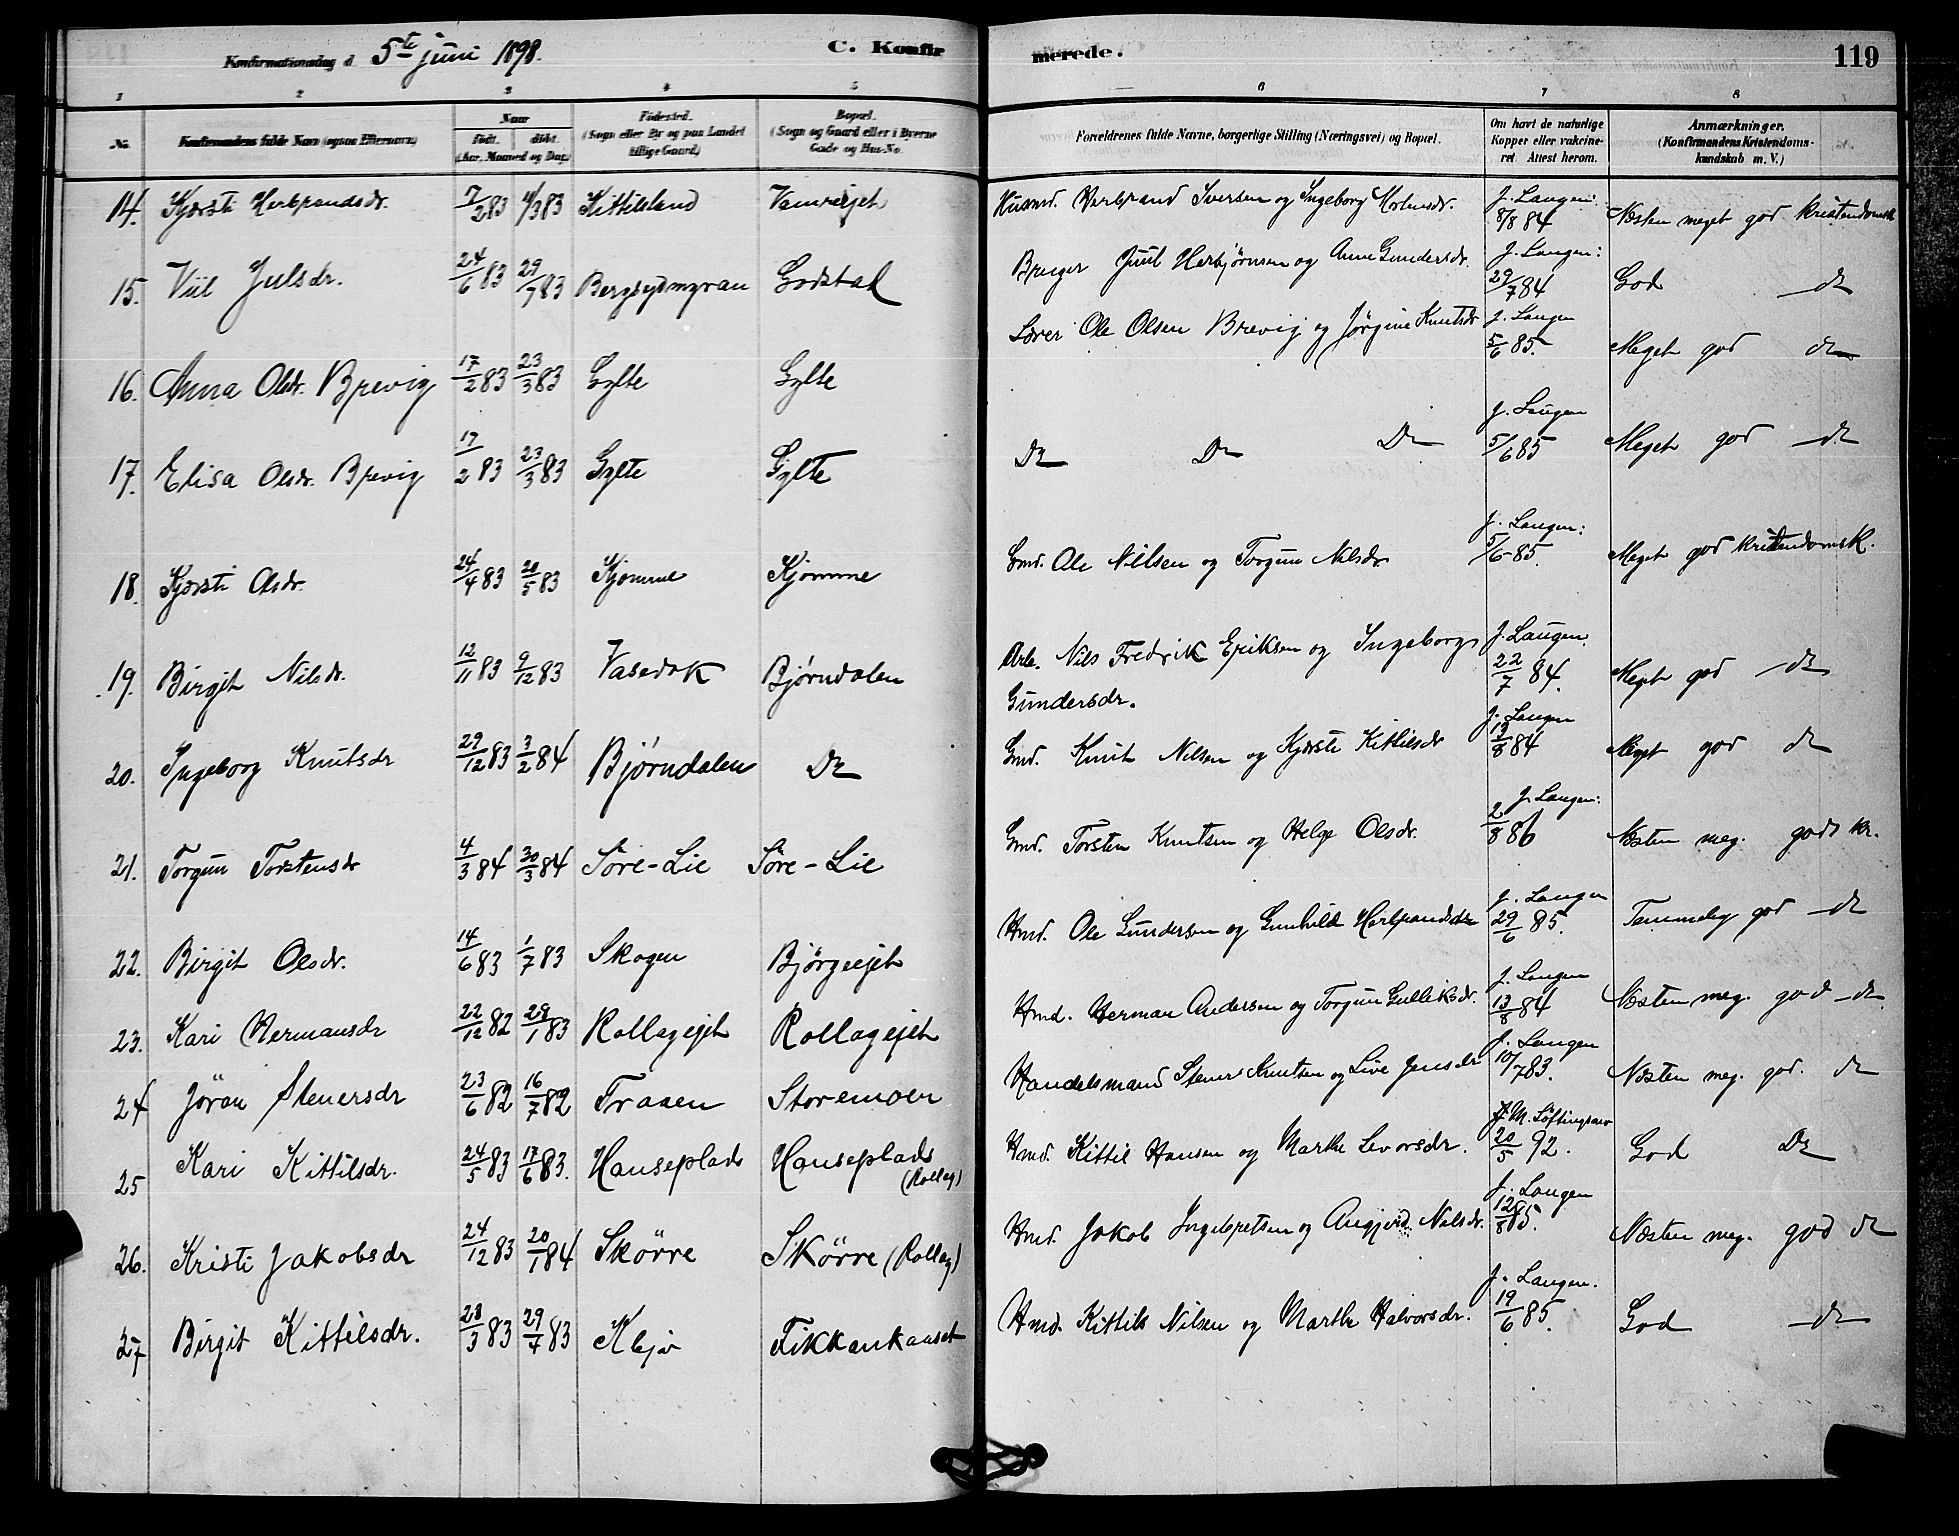 Konfirmationsdag d. 5te juni 1898. C. Konfirmerede. 119
1 2 3 4 5 6 7 8
No. Konfirmandens fulde Navn (ogsaa Efternavn.) Naar født. døbt. (Aar, Maaned og Dag.) Fødested. (Sogn eller By og paa Landet tillige Gaard.) Bopæl. (Sogn og Gaard eller i Byerne Gade og Hus-No. Forældrenes fulde Navne, borgerlige Stilling (Næringsvei) og Bopæl. Om havt de naturlige Kopper eller vakcineret Attest herom. Anmærkninger. (Konfirmandens Kristendomskundskab m. V.)
14. Kjersti Herbrandsdr. 7/2 83 4/3 83 Kittilsland Husmd. Herbrand Iversen og Ingeborg J. Langen: 8/8 84 Næsten meget god kristendomsk
15. Viil Julsdr. 24/6 83 29/7 83 Godstal Bruger Juul Herbjørnsen og Anne Gundersdr. J. Langen: 29/7 84 God do
16. Anna Olsdr. Brevig 17/2 83 23/3 83 Gylte Gylte Lærer Ole Olsen Brevig og Jörgine Knutsdr J. Langen 5/6 85. Meget god do
17. Elisa Olsdr. Brevig 17/2 83 23/3 83 Gylte Gylte Do Do Do J. Langen 5/6 85 Meget god do
18. Kjersti Olsdr. 24/4 83 20/5 83 Kjomme Kjomme Gmd. Ole Nilsen og Torgun Nilsdr J. Langen: 5/6 85. Meget god kristendomsk.
19. Birgit Nilsdr. 12/11 83 9/12 83 Bjørndalen Arb. Nils Fredrik Eriksen og Ingeborg Gundersdr. J. Langen. 22/7 84. Meget god do
20. Ingeborg Knutsdr 29/12 83 3/2 84 Bjørndalen Do Gmd. Knut Nilsen og Kjersti Kittilsdr J. Langen 13/8 84 Meget god do
21. Torgun Torstensdr 4/3 84 30/3 84 Söre-Lie Söre-Lie Gmd. Torsten Knutsen og Helge Olsdr. J. Langen: 2/8 86 Næsten meg. godt kr.
22. Birgit Olsdr. 14/6 83 1/7 83 Skogen Bjørgeejet Hmd. Ole Gundersen og Gunhild Herbrandsdr J. Langen 29/6 85. Temmelig god do
23. Kari Hermansdr 22/12 82 28/1 83 Rollagejet Rollagejet Hmd. Herman Andersen og Torgun Gulliksdr. J. Langen 13/8 84 Næsten meg. god do
24 Jöran Stenersdr 23/6 82 16/7 82 Traaen Storemoen Handelsmand Stener Knutsen og Live Jensdr J. Langen 10/7 83. Næsten meg. god. do
25 Kari Kittilsdr. 24/5 83 17/6 83. Hanseplads Hanseplads (Rollag) Hmd. Kittil Hansen og Marthe Levorsdr. 20/5 92. God Do
26. Kristi Jakobsdr 24/12 83 20/1 84 Skörre Skörre (Rollag) Hmd. Jakob Ingebretsen og Angjerd Nilsdr. J. Langen 12/8 85. Næsten meg. god do
27 Birgit Kittilsdr. 28/3 83 29/4 83 Hmd. Kittil Nilsen og Marthe Halvorsdr. J. Langen. 19/6 85. God do